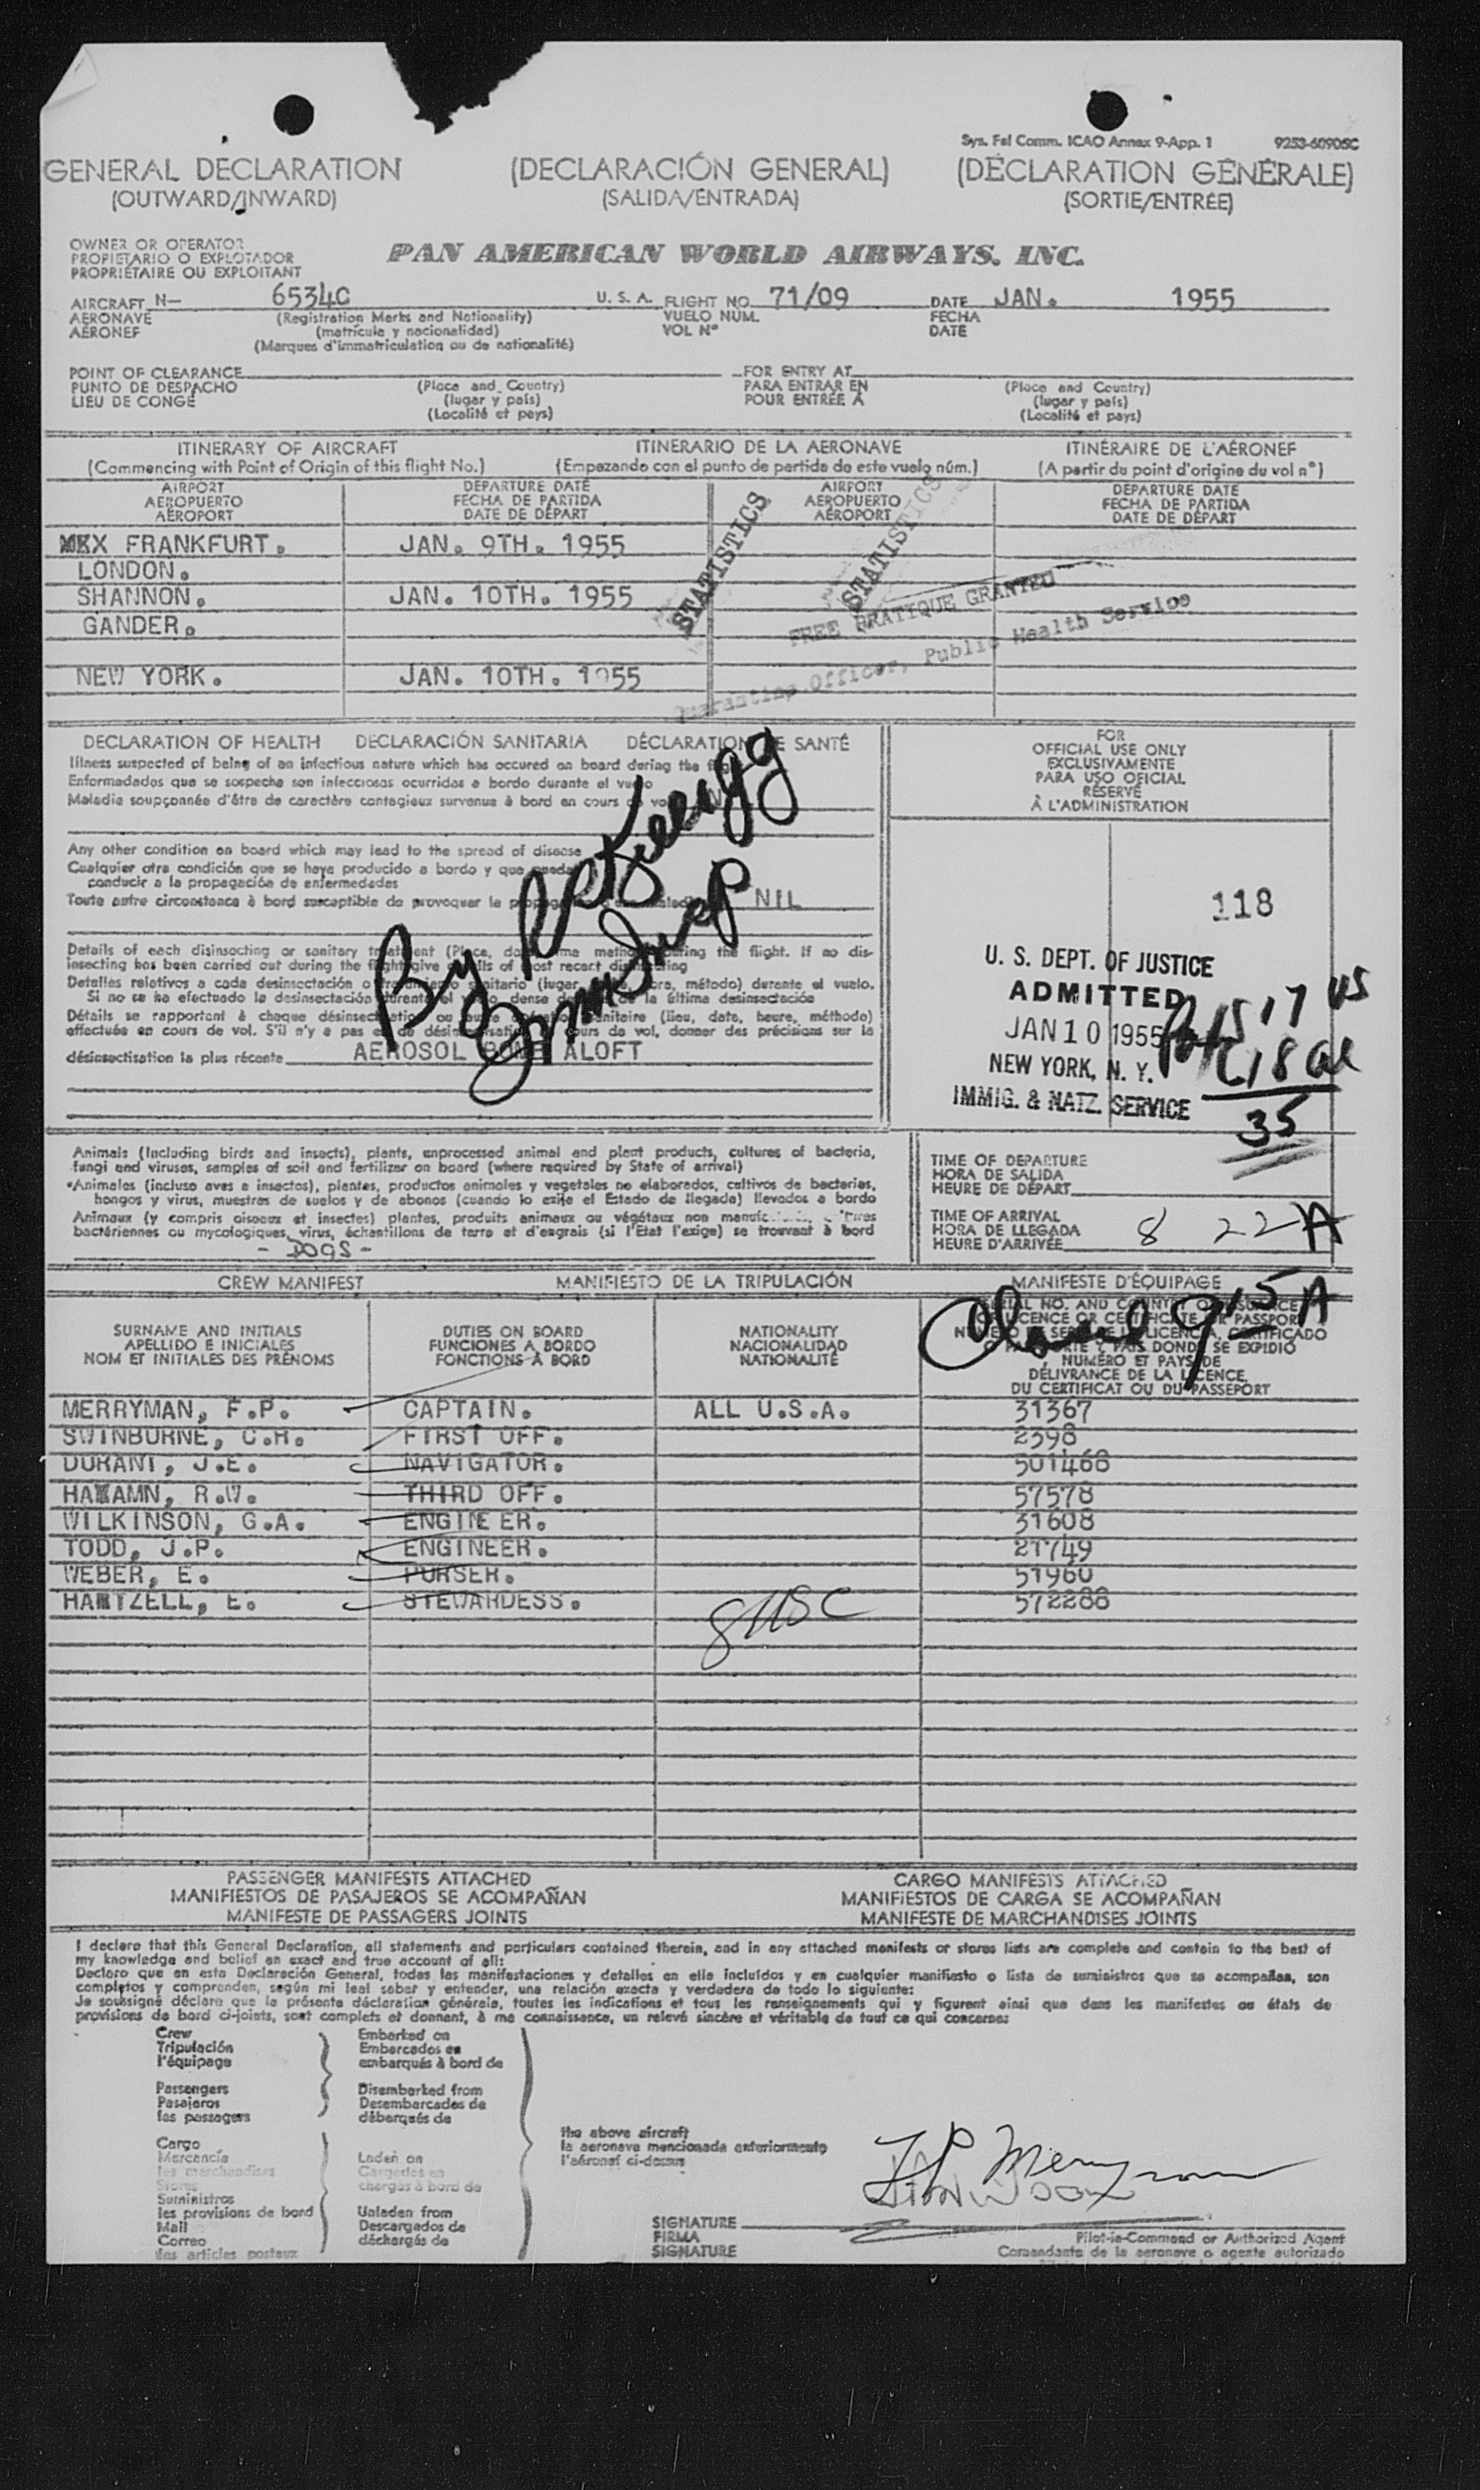 Sys. Fal Comm. ICAO Annex 9-App. 1 9253-60905C
GENERAL DECLARATION (DECLARACIÓN GENERAL) (DÉCLARATION GÉNÉRALE)
(OUTWARD/INWARD) (SALIDA/ENTRADA) (SORTIE/ENTRÉE)
OWNER OR OPERATOR
PROPIETARIO O EXPLOTADOR
PROPRIÉTAIRE OU EXPLOITANT
PAN AMERICAN WORLD AIRWAYS, INC.
AIRCRAFT N- 6534C U. S. A. FLIGHT NO. 71/09 DATE JAN. 1955
AERONAVE (Registration Marks and Nationality) VUELO NÚM. FECHA
AÉRONEF (matrícula y nacionalidad) VOL Nº DATE
(Marques d'immatriculation ou de nationalité)
POINT OF CLEARANCE FOR ENTRY AT
PUNTO DE DESPACHO (Place and Country) PARA ENTRAR EN (Place and Country)
LIEU DE CONGÉ (lugar y país) POUR ENTRÉE À (lugar y país)
(Localité et pays) (Localité et pays)
ITINERARY OF AIRCRAFT ITINERARIO DE LA AERONAVE ITINÉRAIRE DE L'AÉRONEF
(Commencing with Point of Origin of this flight No.) (Empezando con el punto de partida de este vuelo núm.) (A partir du point d'origine du vol nº)
AIRPORT DEPARTURE DATE AIRPORT DEPARTURE DATE
AEROPUERTO FECHA DE PARTIDA AEROPUERTO FECHA DE PARTIDA
AÉROPORT DATE DE DÉPART AÉROPORT DATE DE DÉPART
FRANKFURT. JAN. 9TH. 1955
LONDON.
SHANNON. JAN. 10TH. 1955
GANDER.
NEW YORK. JAN. 10TH. 1955
STATISTICS
STATISTICS
FREE PRATIQUE GRANTED
Quarantine Officer, Public Health Service
DECLARATION OF HEALTH DECLARACIÓN SANITARIA DÉCLARATION DE SANTÉ
Illness suspected of being of an infectious nature which has occured on board during the flight
Enfermedades que se sospecha son infecciosas ocurridas a bordo durante el vuelo
Maladie soupçonnée d'être de caractère contagieux survenue à bord en cours de vol
Any other condition on board which may lead to the spread of disease
Cualquier otra condición que se haya producido a bordo y que pueda
conducir a la propagación de enfermedades
Toute autre circonstance à bord susceptible de provoquer la propagation NIL
Details of each disinsecting or sanitary treatment (Place, date, time, method) during the flight. If no dis-
insecting has been carried out during the flight give details of most recent disinsecting
Detalles relativos a cada desinsectación o tratamiento sanitario (lugar, fecha, hora, método) durante el vuelo.
Si no se ha efectuado la desinsectación durante el vuelo dense detalles de la última desinsectación
Détails se rapportant à chaque désinsectisation ou autre opération sanitaire (lieu, date, heure, méthode)
effectuée en cours de vol. S'il n'y a pas eu de désinsectisation en cours de vol, donner des précisions sur la
désinsectisation la plus récente AEROSOL BOMB ALOFT
By
FOR
OFFICIAL USE ONLY
EXCLUSIVAMENTE
PARA USO OFICIAL
RÉSERVÉ
À L'ADMINISTRATION
118
U. S. DEPT. OF JUSTICE
ADMITTED
JAN 10 1955
NEW YORK, N. Y.
IMMIG. & NATZ. SERVICE
17 US
18 al
35
Animals (Including birds and insects), plants, unprocessed animal and plant products, cultures of bacteria,
fungi and viruses, samples of soil and fertilizer on board (where required by State of arrival)
*Animales (incluso aves e insectos), plantas, productos animales y vegetales no elaborados, cultivos de bacterias,
hongos y virus, muestras de suelos y de abonos (cuando lo exija el Estado de llegada) llevados a bordo
Animaux (y compris oiseaux et insectes) plantes, produits animaux ou végétaux non manufacturés, cultures
bactériennes ou mycologiques, virus, échantillons de terre et d'engrais (si l'État l'exige) se trouvant à bord
- DOGS -
TIME OF DEPARTURE
HORA DE SALIDA
HEURE DE DÉPART
TIME OF ARRIVAL
HORA DE LLEGADA
HEURE D'ARRIVÉE 8 22 A
CREW MANIFEST MANIFIESTO DE LA TRIPULACIÓN MANIFESTE D'ÉQUIPAGE
9 15 A
SURNAME AND INITIALS DUTIES ON BOARD NATIONALITY SERIAL NO. AND COUNTRY OF ISSUANCE
APELLIDO E INICIALES FUNCIONES A BORDO NACIONALIDAD LICENCE OR CERTIFICATE OR PASSPORT
NOM ET INITIALES DES PRÉNOMS FONCTIONS À BORD NATIONALITÉ NÚMERO DE SERIE DE LICENCIA, CERTIFICADO
O PASAPORTE Y PAÍS DONDE SE EXPIDIÓ
NUMÉRO ET PAYS DE
DÉLIVRANCE DE LA LICENCE,
DU CERTIFICAT OU DU PASSEPORT
MERRYMAN, F.P. CAPTAIN. ALL U.S.A. 31367
SWINBURNE, C.H. FIRST OFF. 2398
DURANT, J.E. NAVIGATOR. 501468
R.W. THIRD OFF. 57578
WILKINSON, G.A. ENGINEER. 31608
TODD, J.P. ENGINEER. 27749
WEBER, E. PURSER. 51960
HARTZELL, E. STEWARDESS. 572288
8 USC
PASSENGER MANIFESTS ATTACHED CARGO MANIFESTS ATTACHED
MANIFIESTOS DE PASAJEROS SE ACOMPAÑAN MANIFIESTOS DE CARGA SE ACOMPAÑAN
MANIFESTE DE PASSAGERS JOINTS MANIFESTE DE MARCHANDISES JOINTS
I declare that this General Declaration, all statements and particulars contained therein, and in any attached manifests or stores lists are complete and contain to the best of
my knowledge and belief an exact and true account of all:
Declaro que en esta Declaración General, todas las manifestaciones y detalles en ella incluídos y en cualquier manifiesto o lista de suministros que se acompañan, son
completos y comprenden, según mi leal saber y entender, una relación exacta y verdadera de todo lo siguiente:
Je soussigné déclare que la présente déclaration générale, toutes les indications et tous les renseignements qui y figurent ainsi que dans les manifestes ou états de
provisions de bord ci-joints, sont complets et donnent, à ma connaissance, un relevé sincère et véritable de tout ce qui concerne:
Crew Embarked on
Tripulación Embarcados en
l'équipage embarqués à bord de
Passengers Disembarked from
Pasajeros Desembarcados de
les passagers débarqués de
the above aircraft
la aeronave mencionada anteriormente
l'aéronef ci-dessus
Cargo
Mercancía Laden on
les marchandises Cargados en
Stores chargés à bord de
Suministros
les provisions de bord Unladen from
Mail Descargados de
Correo déchargés de
les articles postaux
F P Merryman
SIGNATURE
FIRMA
SIGNATURE
Pilot-in-Command or Authorized Agent
Comandante de la aeronave o agente autorizado